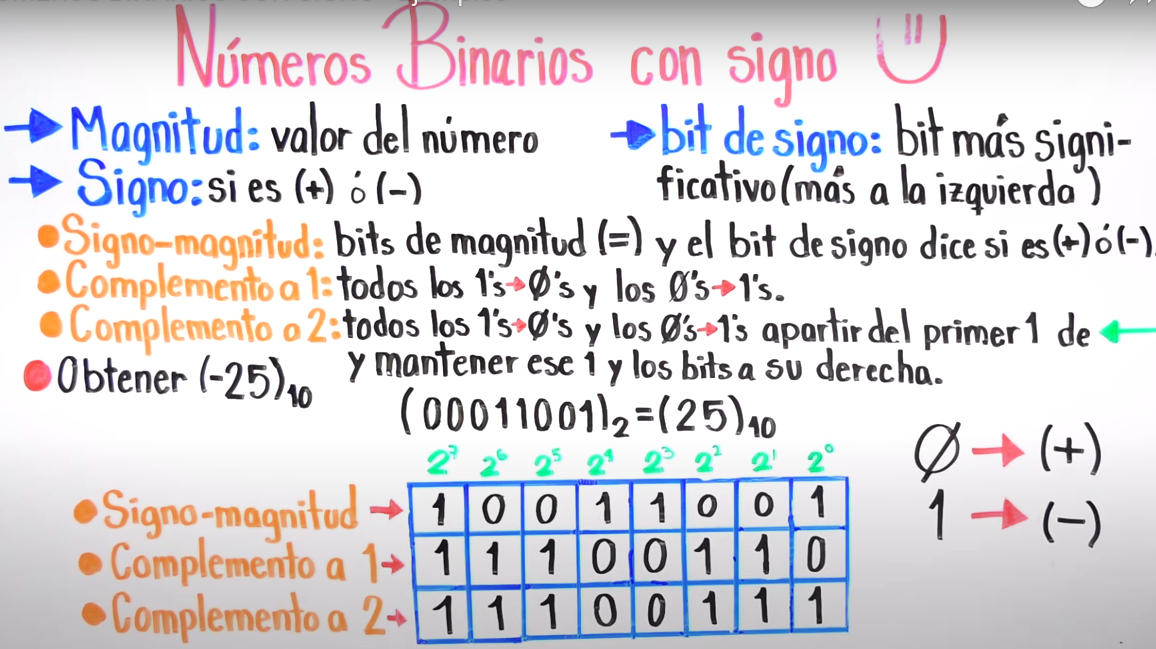 Números Binarios con signo
Magnitud: valor del número
Signo: si es (+) ó (-)
bit de signo: bit más signi-
ficativo (más a la izquierda)
Signo-magnitud: bits de magnitud (=) y el bit de signo dice si es (+) ó (-)
Complemento a 1: todos los 1's→0's y los 0's→1's.
Complemento a 2: todos los 1's→0's y los 0's→1's apartir del primer 1 de ←
y mantener ese 1 y los bits a su derecha.
Obtener (-25)₁₀
(00011001)₂=(25)₁₀
2⁷ 2⁶ 2⁵ 2⁴ 2³ 2² 2¹ 2⁰
Signo-magnitud → 1 0 0 1 1 0 0 1
Complemento a 1→ 1 1 1 0 0 1 1 0
Complemento a 2→ 1 1 1 0 0 1 1 1
0 → (+)
1 → (-)